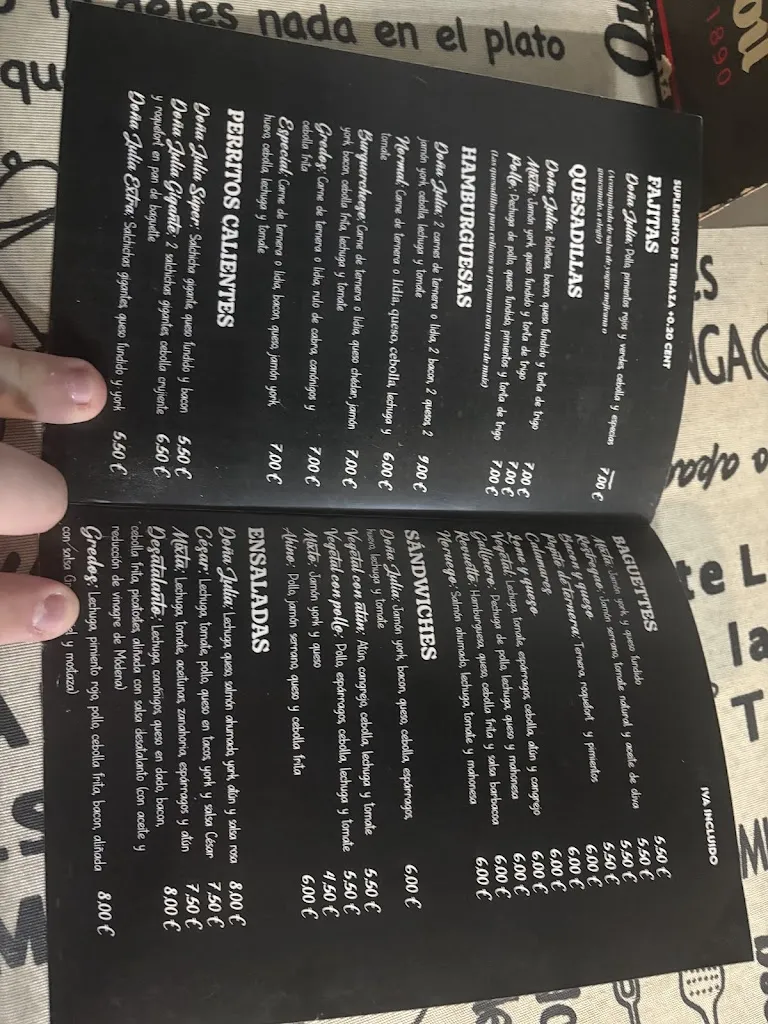 SUPLEMENTO DE TERRAZA +0.20 CENT
FAJITAS
Doña Julia: Pollo, pimientos rojos y verdes, cebolla y especias 7.00 €
(Acompañada de salsa de yogur, mejicana o
guacamole, a elegir)
QUESADILLAS
Doña Julia: Boloñesa, bacon, queso fundido y torta de trigo 7.00 €
Mixta: Jamón york, queso fundido y torta de trigo 7.00 €
Pollo: Pechuga de pollo, queso fundido, pimientos y torta de trigo 7.00 €
(Las quesadillas para celíacos se preparan con torta de maíz)
HAMBURGUESAS
Doña Julia: 2 carnes de ternera o lidia, 2 bacon, 2 quesos, 2
jamón york, cebolla, lechuga y tomate 9.00 €
Normal: Carne de ternera o lidia, queso, cebolla, lechuga y
tomate 6.00 €
Burguercheese: Carne de ternera o lidia, queso chédar, jamón
york, bacon, cebolla frita, lechuga y tomate 7.00 €
Gredos: Carne de ternera o lidia, rulo de cabra, canónigos y
cebolla frita 7.00 €
Especial: Carne de ternera o lidia, bacon, queso, jamón york,
huevo, cebolla, lechuga y tomate 7.00 €
PERRITOS CALIENTES
Doña Julia Súper: Salchicha gigante, queso fundido y bacon 5.50 €
Doña Julia Gigante: 2 salchichas gigantes, cebolla crujiente
y roquefort en pan de baguette 6.50 €
Doña Julia Extra: Salchichas gigantes, queso fundido y york 5.50 €
IVA INCLUIDO
BAGUETTES
Mixta: Jamón york y queso fundido 5.50 €
Restregao: Jamón serrano, tomate natural y aceite de oliva 5.50 €
Bacon y queso 5.50 €
Pepito de ternera: Ternera, roquefort y pimientos 5.50 €
Calamares 6.00 €
Lomo y queso 6.00 €
Vegetal: Lechuga, tomate, espárragos, cebolla, atún y cangrejo 6.00 €
Gallinero: Pechuga de pollo, lechuga, queso y mahonesa 6.00 €
Hamburguesa, queso, cebolla frita y salsa barbacoa 6.00 €
Noruego: Salmón ahumado, lechuga, tomate y mahonesa 6.00 €
SÁNDWICHES
Doña Julia: Jamón york, bacon, queso, cebolla, espárragos,
huevo, lechuga y tomate 6.00 €
Vegetal con atún: Atún, cangrejo, cebolla, lechuga y tomate 5.50 €
Vegetal con pollo: Pollo, espárragos, cebolla, lechuga y tomate 5.50 €
Mixto: Jamón york y queso 4.50 €
Pollo, jamón serrano, queso y cebolla frita 6.00 €
ENSALADAS
Doña Julia: Lechuga, queso, salmón ahumado, york, atún y salsa rosa 8.00 €
César: Lechuga, tomate, pollo, queso en tacos, york y salsa César 7.50 €
Mixta: Lechuga, tomate, aceitunas, zanahoria, espárragos y atún 7.50 €
Desatalanto: Lechuga, canónigos, queso en dado, bacon, 8.00 €
cebolla frita, picatostes, aliñada con salsa desatalanto (con aceite y
reducción de vinagre de Módena)
Gredos: Lechuga, pimiento rojo, pollo, cebolla frita, bacon, aliñada 8.00 €
con salsa y mostaza)
nada en el plato
1890